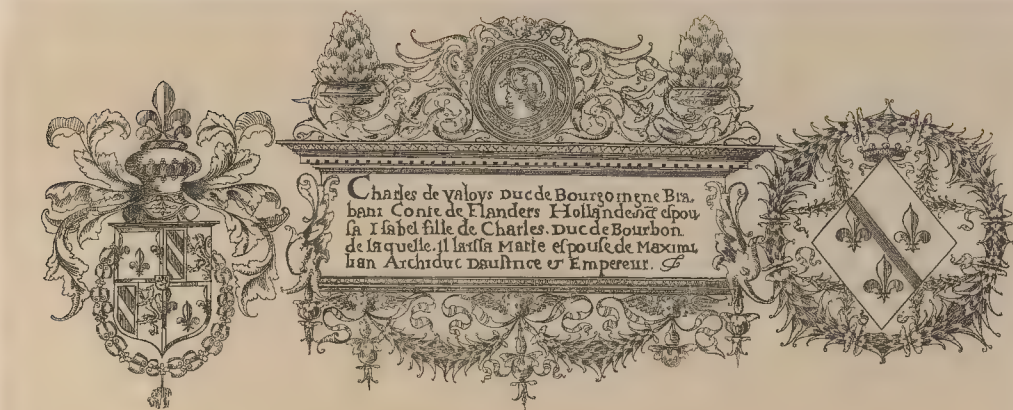 Charles de Valoys Duc de Bourgoingne Bra-
bant Conte de Flanders Hollande &ct espou
sa Isabel fille de Charles. Duc de Bourbon.
de laquelle. Il laissa Marie espouse de Maximi
lian Archiduc Daustrice et Empereur.